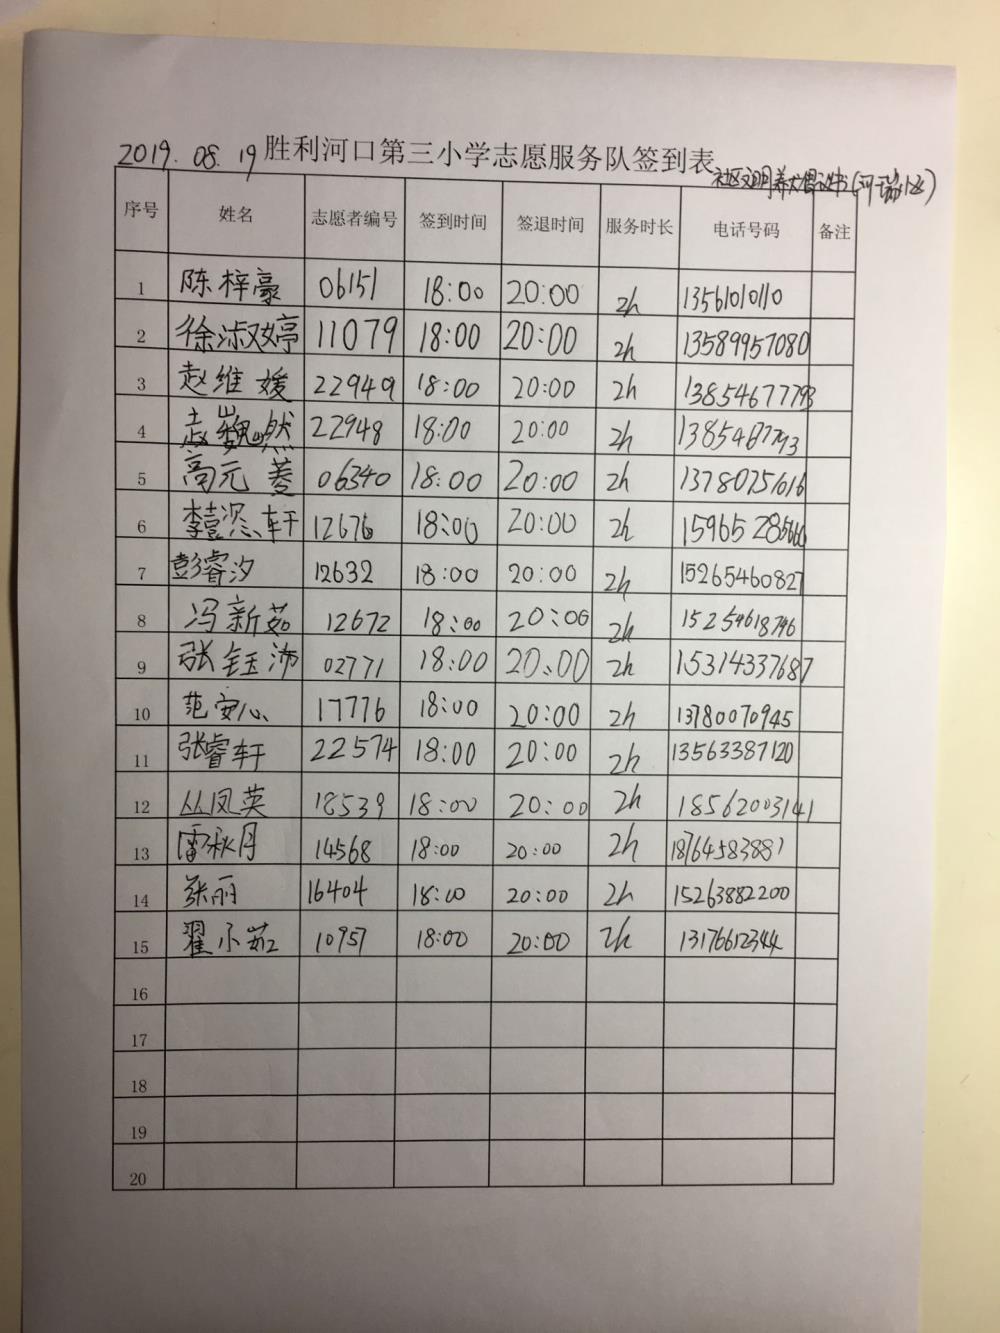 2019.08.19 胜利河口第三小学志愿服务队签到表
社区文明养犬倡议书(河瑞小区)
序号 姓名 志愿者编号 签到时间 签退时间 服务时长 电话号码 备注
1 陈梓豪 06151 18:00 20:00 2h 13561010110
2 徐淑婷 11079 18:00 20:00 2h 13589957080
3 赵维媛 22949 18:00 20:00 2h 13854677793
4 赵巍然 22948 18:00 20:00 2h
5 高元菱 06340 18:00 20:00 2h 13780751016
6 李 轩 12676 18:00 20:00 2h 15965285660
7 彭睿汐 12632 18:00 20:00 2h 15265460827
8 冯新茹 12672 18:00 20:00 2h 15254618796
9 张钰沛 02771 18:00 20:00 2h 15314337687
10 范安心 17776 18:00 20:00 2h 13780070945
11 张睿轩 22574 18:00 20:00 2h 13563387120
12 丛凤英 18539 18:00 20:00 2h 18562003141
13 雷秋月 14568 18:00 20:00 2h 18764583881
14 张丽 16404 18:00 20:00 2h 15263882200
15 翟小茹 10957 18:00 20:00 2h 13176612344
16
17
18
19
20